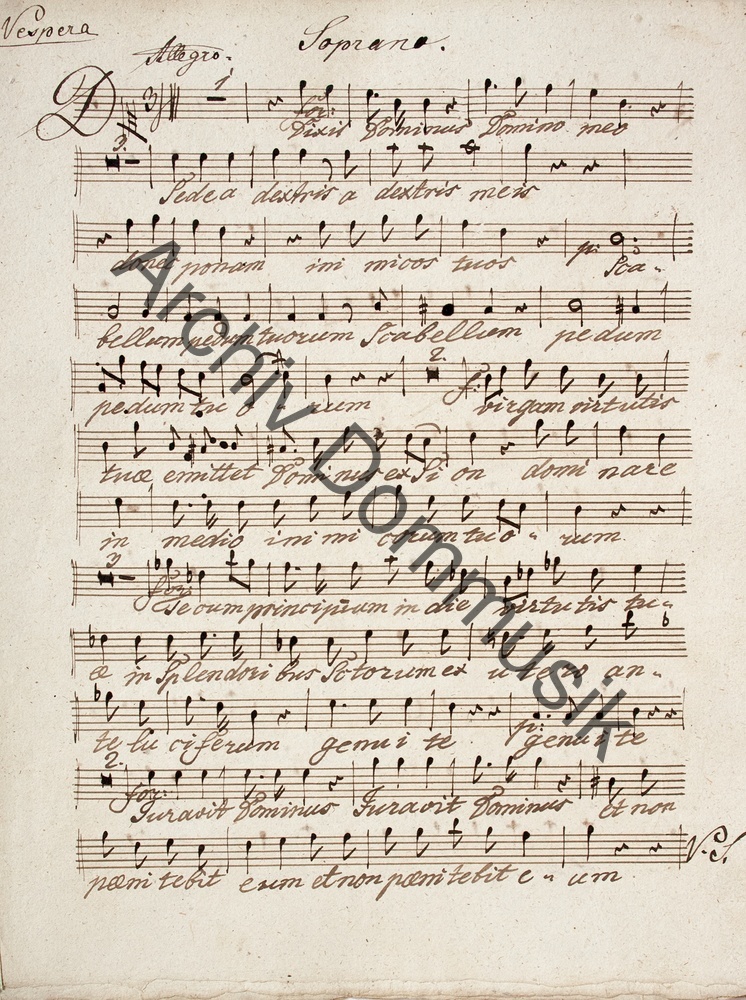 Vespera
Soprano.
Allegro.
1
3 for:
Dixit Dominus Domino meo
3.
Sede a dextris a dextris meis
p:
donec ponam ini micos tuos Sca-
bellum pedum tuorum Scabellum pedum
2. f:
pedum tu o - rum virgam virtutis
tuæ emittet Dominus ex Si on domi nare
in medio inimi corum tuo - rum
3 for:
Tecum principium in die virtutis tu-
æ in Splendori bus Sctorum ex utero an-
p:
te lu ciferum genu i te genu i te
2. for:
Juravit Dominus Juravit Dominus et non
pæni tebit eum et non pænitebit e - um
V. S.
Archiv Dommusik